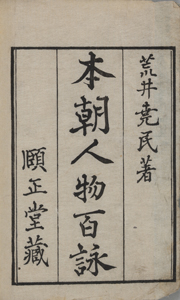 荒井堯民著
本朝人物百詠
頤正堂藏